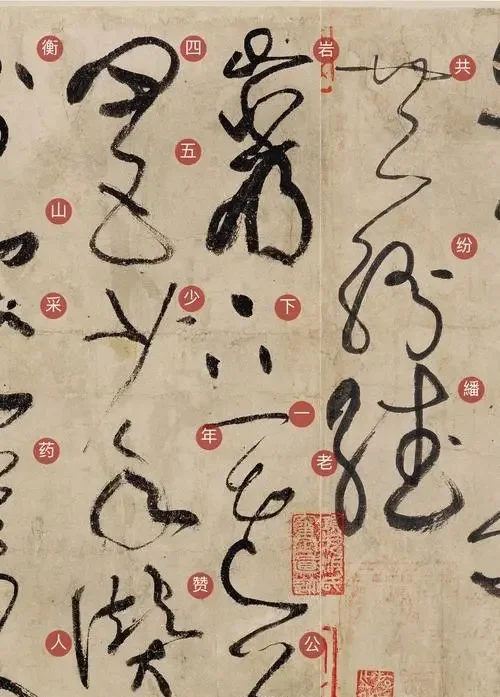 共纷繙
岩下一老公
四五少年赞
衡山采药人